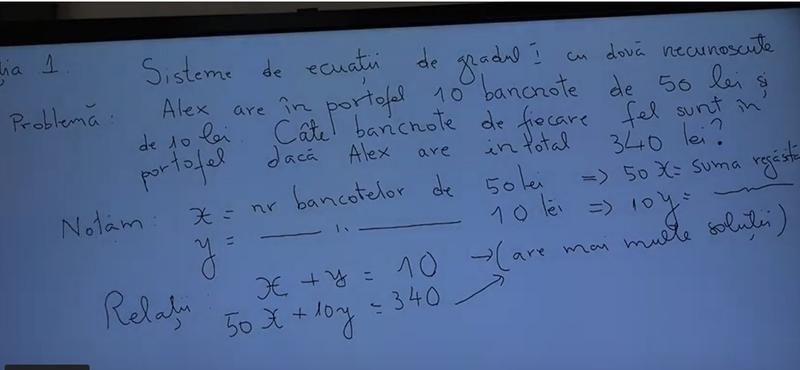 ia 1. Sisteme de ecuații de gradul I cu două necunoscute
Problemă: Alex are în portofel 10 bancnote de 50 lei și
de 10 lei. Câte bancnote de fiecare fel sunt în
portofel dacă Alex are in total 340 lei?
Notăm: x = nr bancotelor de 50 lei => 50 x = suma
y = —— 11 —— 10 lei => 10 y = ——
Relații: x + y = 10 → (are mai multe soluții)
50 x + 10y = 340